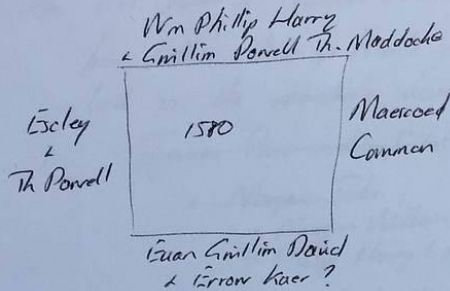 Wm Phillip Harry
& Guillim Powell Th. Maddocke
Escley
&
Th Powell
1580
Maercoed
Common
Euan Guillim David
& Errow Kaer ?